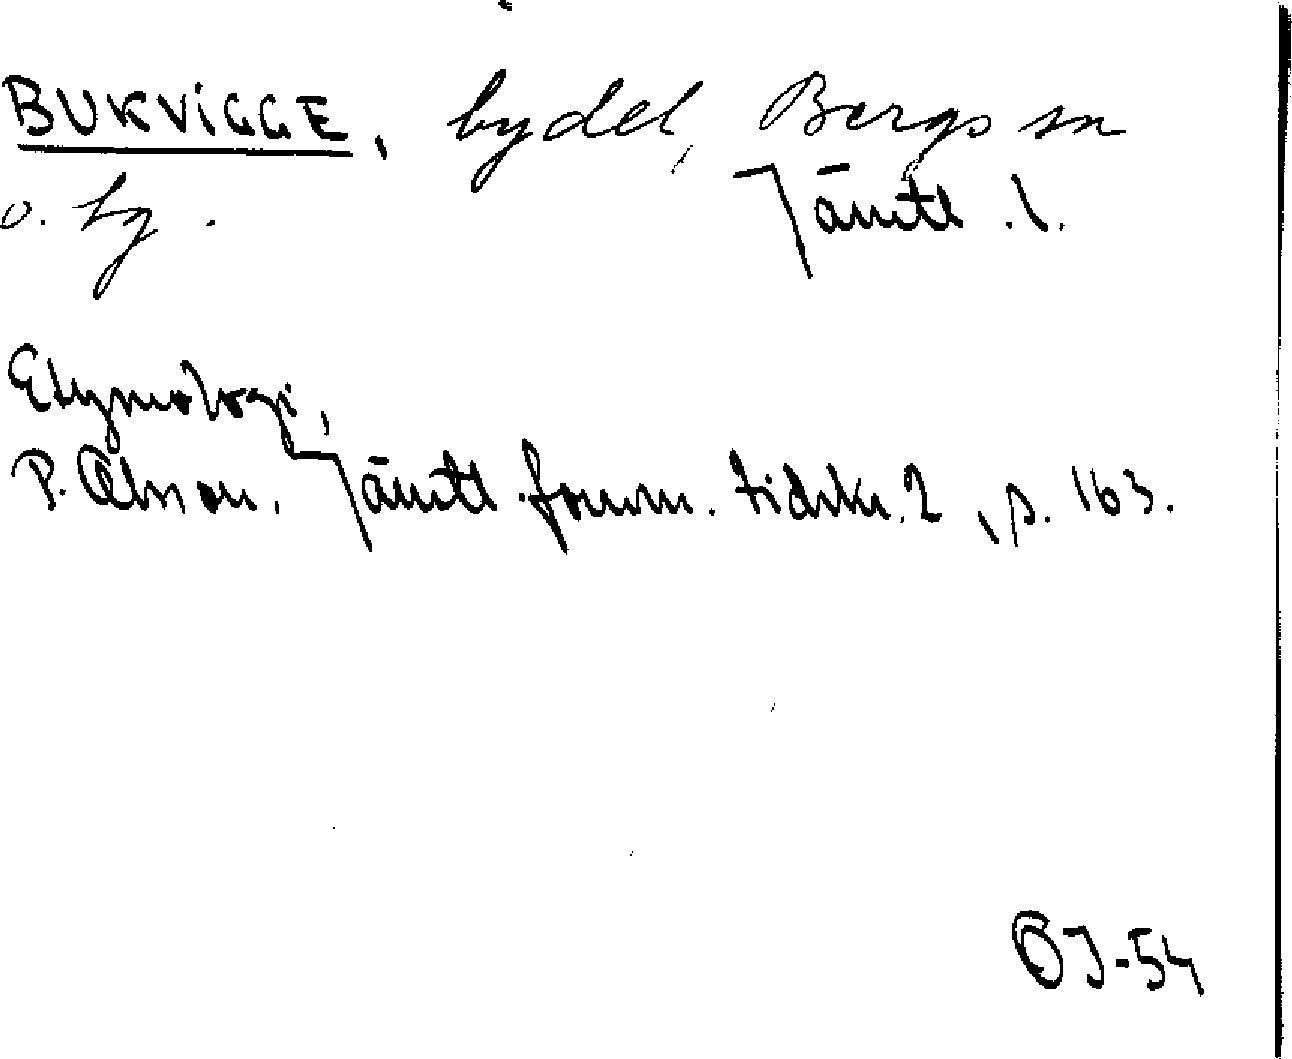 BUKVIGGE, bydel, Bergs sn
o. by. Jämtl. l.
Etymologi,
P. Olsson, Jämtl. fornm. tidskr. 2, s. 163.
OJ-54